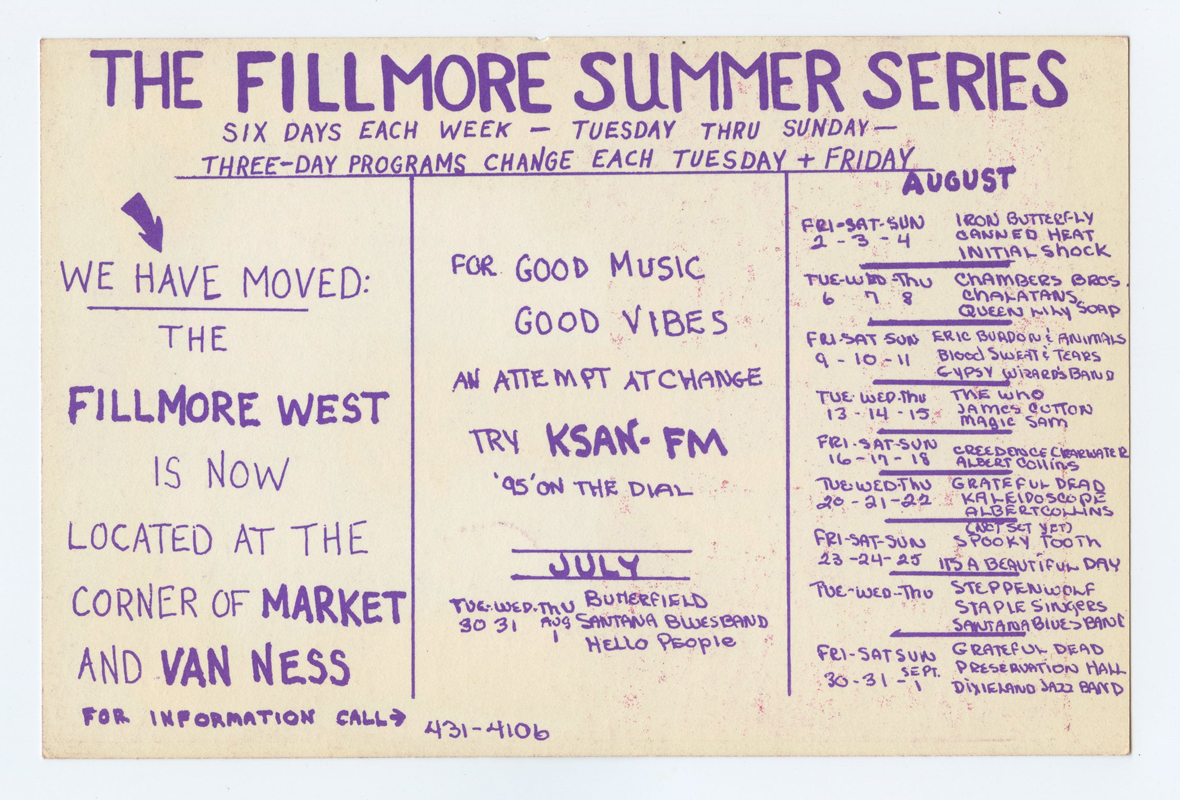 THE FILLMORE SUMMER SERIES
SIX DAYS EACH WEEK — TUESDAY THRU SUNDAY —
THREE-DAY PROGRAMS CHANGE EACH TUESDAY + FRIDAY
WE HAVE MOVED:
THE
FILLMORE WEST
IS NOW
LOCATED AT THE
CORNER OF MARKET
AND VAN NESS
FOR INFORMATION CALL→ 431-4106
FOR GOOD MUSIC
GOOD VIBES
AN ATTEMPT AT CHANGE
TRY KSAN-FM
'95' ON THE DIAL
JULY
TUE-WED-THU BUTTERFIELD
30 31 AUG 1 SANTANA BLUES BAND
HELLO PEOPLE
AUGUST
FRI-SAT-SUN IRON BUTTERFLY
2 - 3 - 4 CANNED HEAT
INITIAL SHOCK
TUE-WED-THU CHAMBERS BROS.
6 7 8 CHALATANS
QUEEN LILY SOAP
FRI-SAT SUN ERIC BURDON & ANIMALS
9 - 10 - 11 BLOOD SWEAT & TEARS
GYPSY WIZARDS BAND
TUE-WED-THU THE WHO
13 - 14 - 15 JAMES COTTON
MAGIC SAM
FRI-SAT-SUN CREEDENCE CLEARWATER
16-17-18 ALBERT COLLINS
TUE-WED-THU GRATEFUL DEAD
20-21-22 KALEIDOSCOPE
ALBERT COLLINS
(NOT SET YET)
FRI-SAT-SUN SPOOKY TOOTH
23-24-25 ITS A BEAUTIFUL DAY
TUE-WED-THU STEPPENWOLF
STAPLE SINGERS
SANTANA BLUES BAND
FRI-SAT SUN GRATEFUL DEAD
30-31 - SEPT. 1 PRESERVATION HALL
DIXIELAND JAZZ BAND